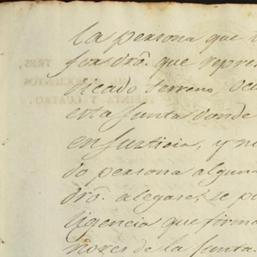 la persona que
dro. que repre
licado Terreno, ocu
esta Junta donde
en Justicia, y n
do persona alguna
dro. a legarse, se p
ligencia que firma
nores de la Junta